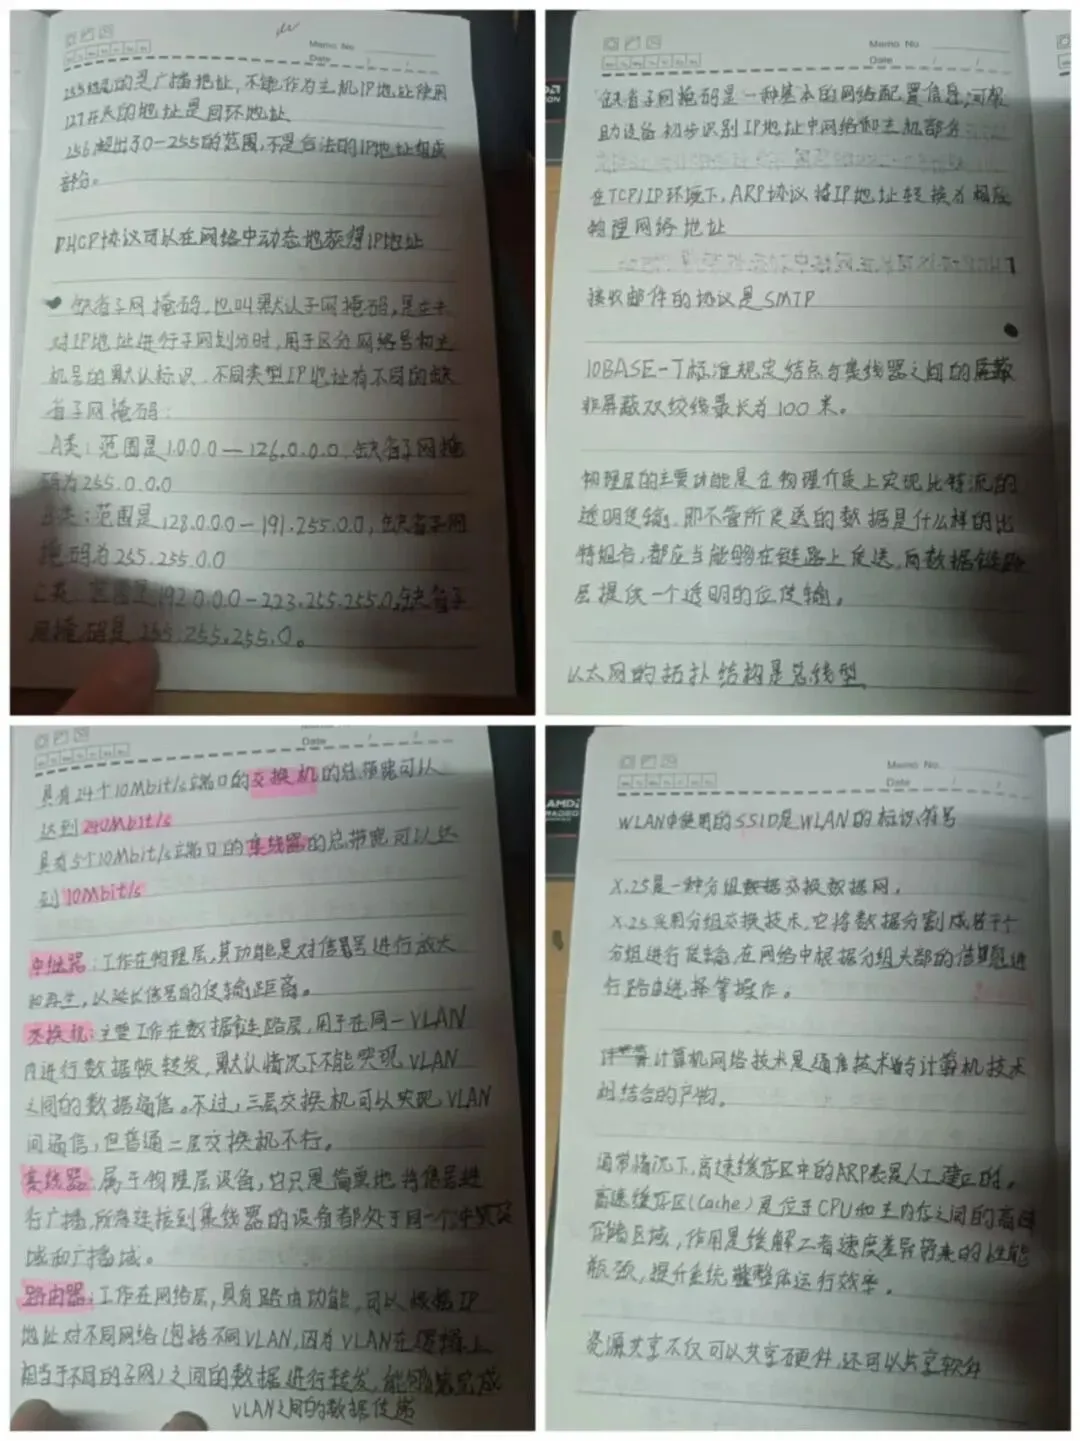 Memo No
Date
255结尾的是广播地址,不能作为主机IP地址使用
127开头的地址是回环地址
256,超出了0-255的范围,不是合法的IP地址组成
部分。
DHCP协议可以在网络中动态地获得IP地址
缺省子网掩码,也叫默认子网掩码,是在未
对IP地址进行子网划分时,用于区分网络号和主
机号的默认标识.不同类型IP地址有不同的缺
省子网掩码:
A类:范围是1.0.0.0—126.0.0.0,缺省子网掩
码为255.0.0.0
B类:范围是128.0.0.0-191.255.0.0,缺省子网
掩码为255.255.0.0
C类:范围是192.0.0.0-223.255.255.0,缺省子
网掩码是255.255.255.0。
Memo No
Date
缺省子网掩码是一种基本的网络配置信息,可帮
助设备初步识别IP地址中网络和主机部分
在TCP/IP环境下,ARP协议将IP地址转换为相应
物理网络地址
接收邮件的协议是SMTP
10BASE-T标准规定结点与集线器之间的
非屏蔽双绞线最长为100米。
物理层的主要功能是在物理介质上实现比特流的
透明传输.即不管所发送的数据是什么样的比
特组合,都应当能够在链路上传送,向数据链路
层提供一个透明的位传输。
以太网的拓扑结构是总线型
Date
具有24个10Mbit/s端口的交换机的总频宽可以
达到240Mbit/s
具有5个10Mbit/s端口的集线器的总带宽可以达
到10Mbit/s
中继器:工作在物理层,其功能是对信号进行放大
和再生,以延长信号的传输距离。
交换机:主要工作在数据链路层,用于在同一VLAN
内进行数据帧转发,默认情况下不能实现VLAN
之间的数据通信。不过,三层交换机可以实现VLAN
间通信,但普通二层交换机不行。
集线器:属于物理层设备,它只是简单地将信号进
行广播,所有连接到集线器的设备都处于同一个冲突
域和广播域。
路由器:工作在网络层,具有路由功能,可以根据IP
地址对不同网络(包括不同VLAN,因为VLAN在逻辑上
相当于不同的子网)之间的数据进行转发,能够完成
VLAN之间的数据传递
AMD
RADEON
Memo No.
Date
WLAN中使用的SSID是WLAN的标识符号
X.25是一种分组交换数据网,
X.25采用分组交换技术,它将数据分割成若干个
分组进行传输,在网络中根据分组头部的信息进
行路由选择等操作。
计算机网络技术是通信技术与计算机技术
相结合的产物。
通常情况下,高速缓存区中的ARP表是人工建立的。
高速缓存区(Cache)是位于CPU和主内存之间的高速
存储区域,作用是缓解二者速度差异带来的性能
瓶颈,提升系统整体运行效率。
资源共享不仅可以共享硬件,还可以共享软件